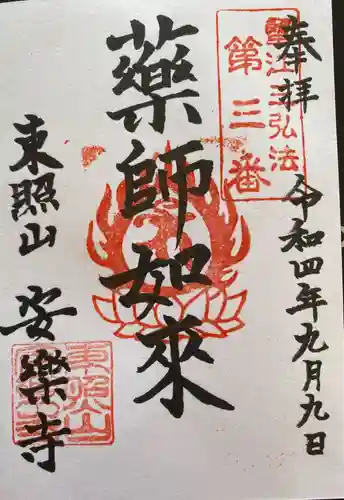 奉拝
令和四年九月九日
弘法
第三番
藥師如來
東照山
安樂寺
東照山